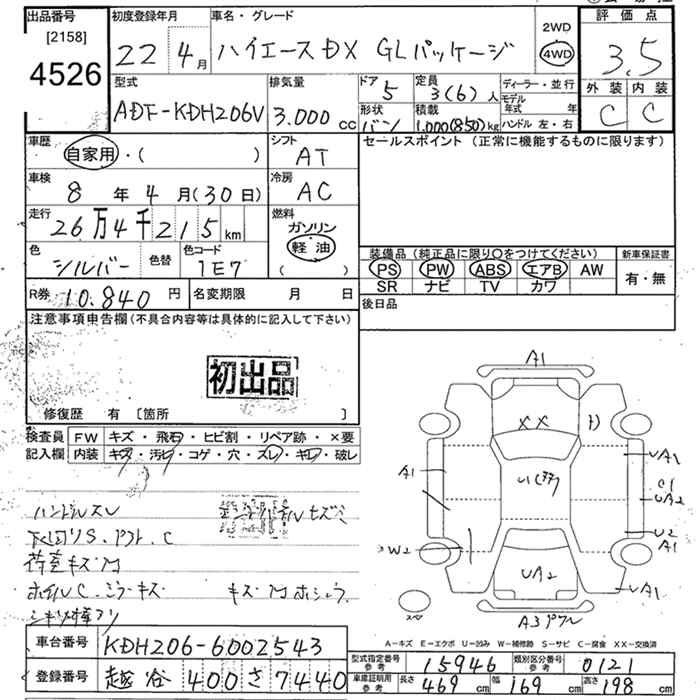 出品番号 初度登録年月 車名・グレード 2WD 評価点
[2158] 22 4月 ハイエースDX GLパッケージ 4WD 3.5
4526 型式 排気量 ドア 5 定員 3(6)人 ディーラー・並行 外装 内装
ADF-KDH206V 3.000cc 形状 バン 積載 1,000(850)kg モデル年式 年 C C
ハンドル 左・右
車歴 自家用・( ) シフト AT セールスポイント (正常に機能するものに限ります)
車検 8年4月(30日) 冷房 AC
走行 26万4千215km 燃料 ガソリン
軽油
( )
色 シルバー 色替 色コード 1E7
装備品 (純正品に限り○をつけてください) 新車保証書
PS PW ABS エアB AW 有・無
SR ナビ TV カワ
R券 10.840円 名変期限 月 日 後日品
注意事項申告欄(不具合内容等は具体的に記入して下さい)
初出品
修復歴 有 [箇所 ]
検査員 FW キズ・飛石・ヒビ割・リペア跡・×要
記入欄 内装 キズ・汚レ・コゲ・穴・スレ・キレ・破レ
ハンドルスレ
下回りS. C
荷室キズ
ホイルC. キズ
A1
XX
A1
UA1
C1
UA2
U2
A1
W2
UA2
UA1
スペ
A3
A-キズ E-エクボ U-凹み W-補修跡 S-サビ C-腐食 XX-交換済
車台番号 KDH206-6002543
登録番号 越谷 400 さ 7440
型式指定番号 参考 15946 類別区分番号 参考 0121
車庫証明用 参考 長さ 469cm 幅 169cm 高さ 198cm